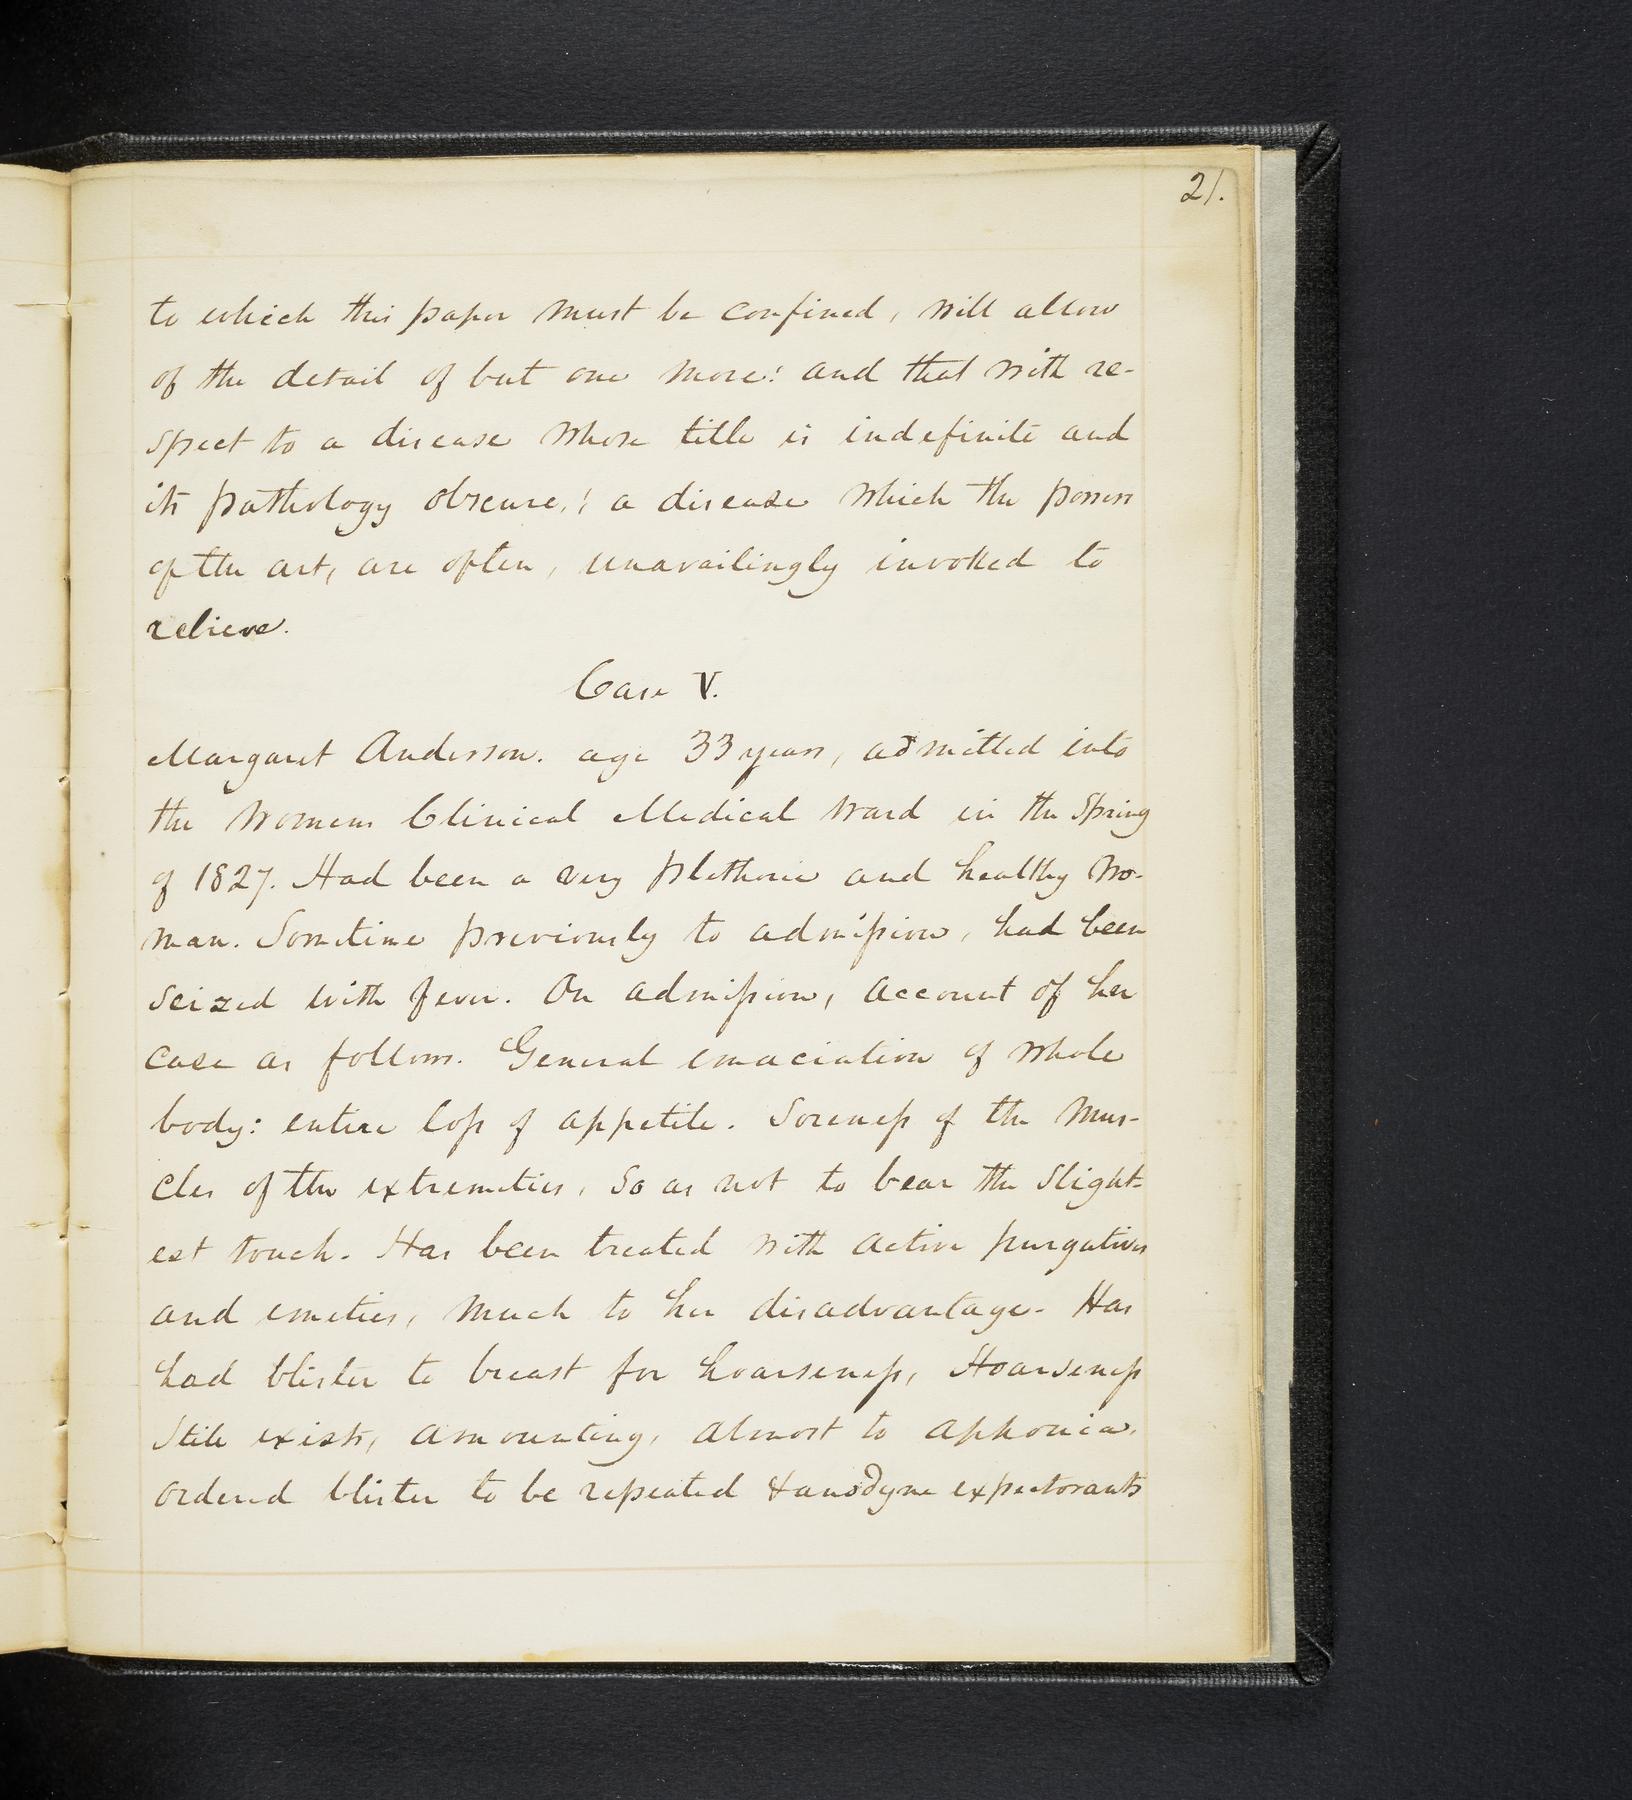 21.
to which this paper must be confined, will allow
of the detail of but one more: and that with re-
spect to a disease whose title is indefinite and
its pathology obscure,: a disease which the powers
of the art, are often, unavailingly invoked to
relieve.
Case V.
Margaret Anderson. age 33 years, admitted into
the womens Clinical Medical ward in the Spring
of 1827. Had been a very plethoric and healthy wo-
man. Sometime previously to admission, had been
seized with fever. On admission, account of her
case as follows. General emaciation of whole
body: entire loss of appetite. Soreness of the mus-
cles of the extremities, so as not to bear the slight-
est touch. Has been treated with active purgatives
and emetics, much to her disadvantage. Has
had blister to breast for hoarseness, Hoarseness
still exists, amounting, almost to aphonia.
ordered blister to be repeated & anodyne expectorants